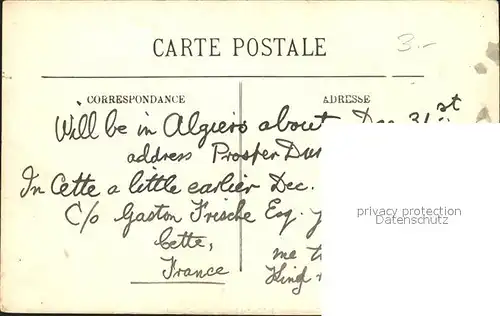 CARTE POSTALE
3.-
CORRESPONDANCE
ADRESSE
Will be in Algiers about Dec 31st
address Prosper Dur
In Cette a little earlier Dec.
C/o Gaston Frische Esq.
Cette,
France
me
Kind
privacy protection
Datenschutz